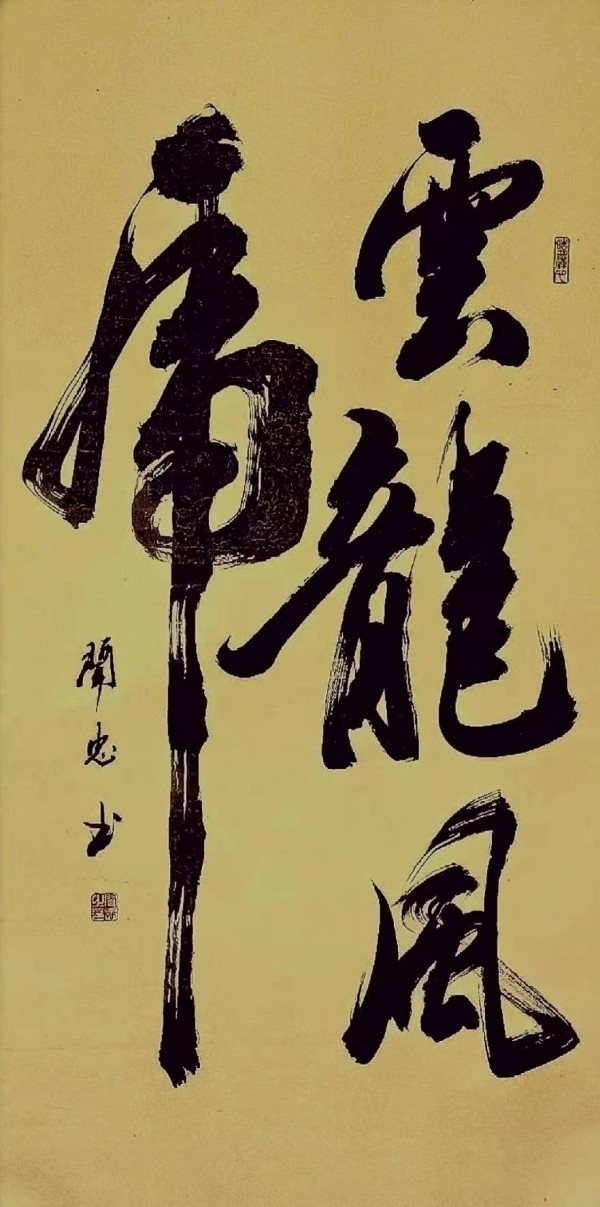 雲龍風
虎
開忠書